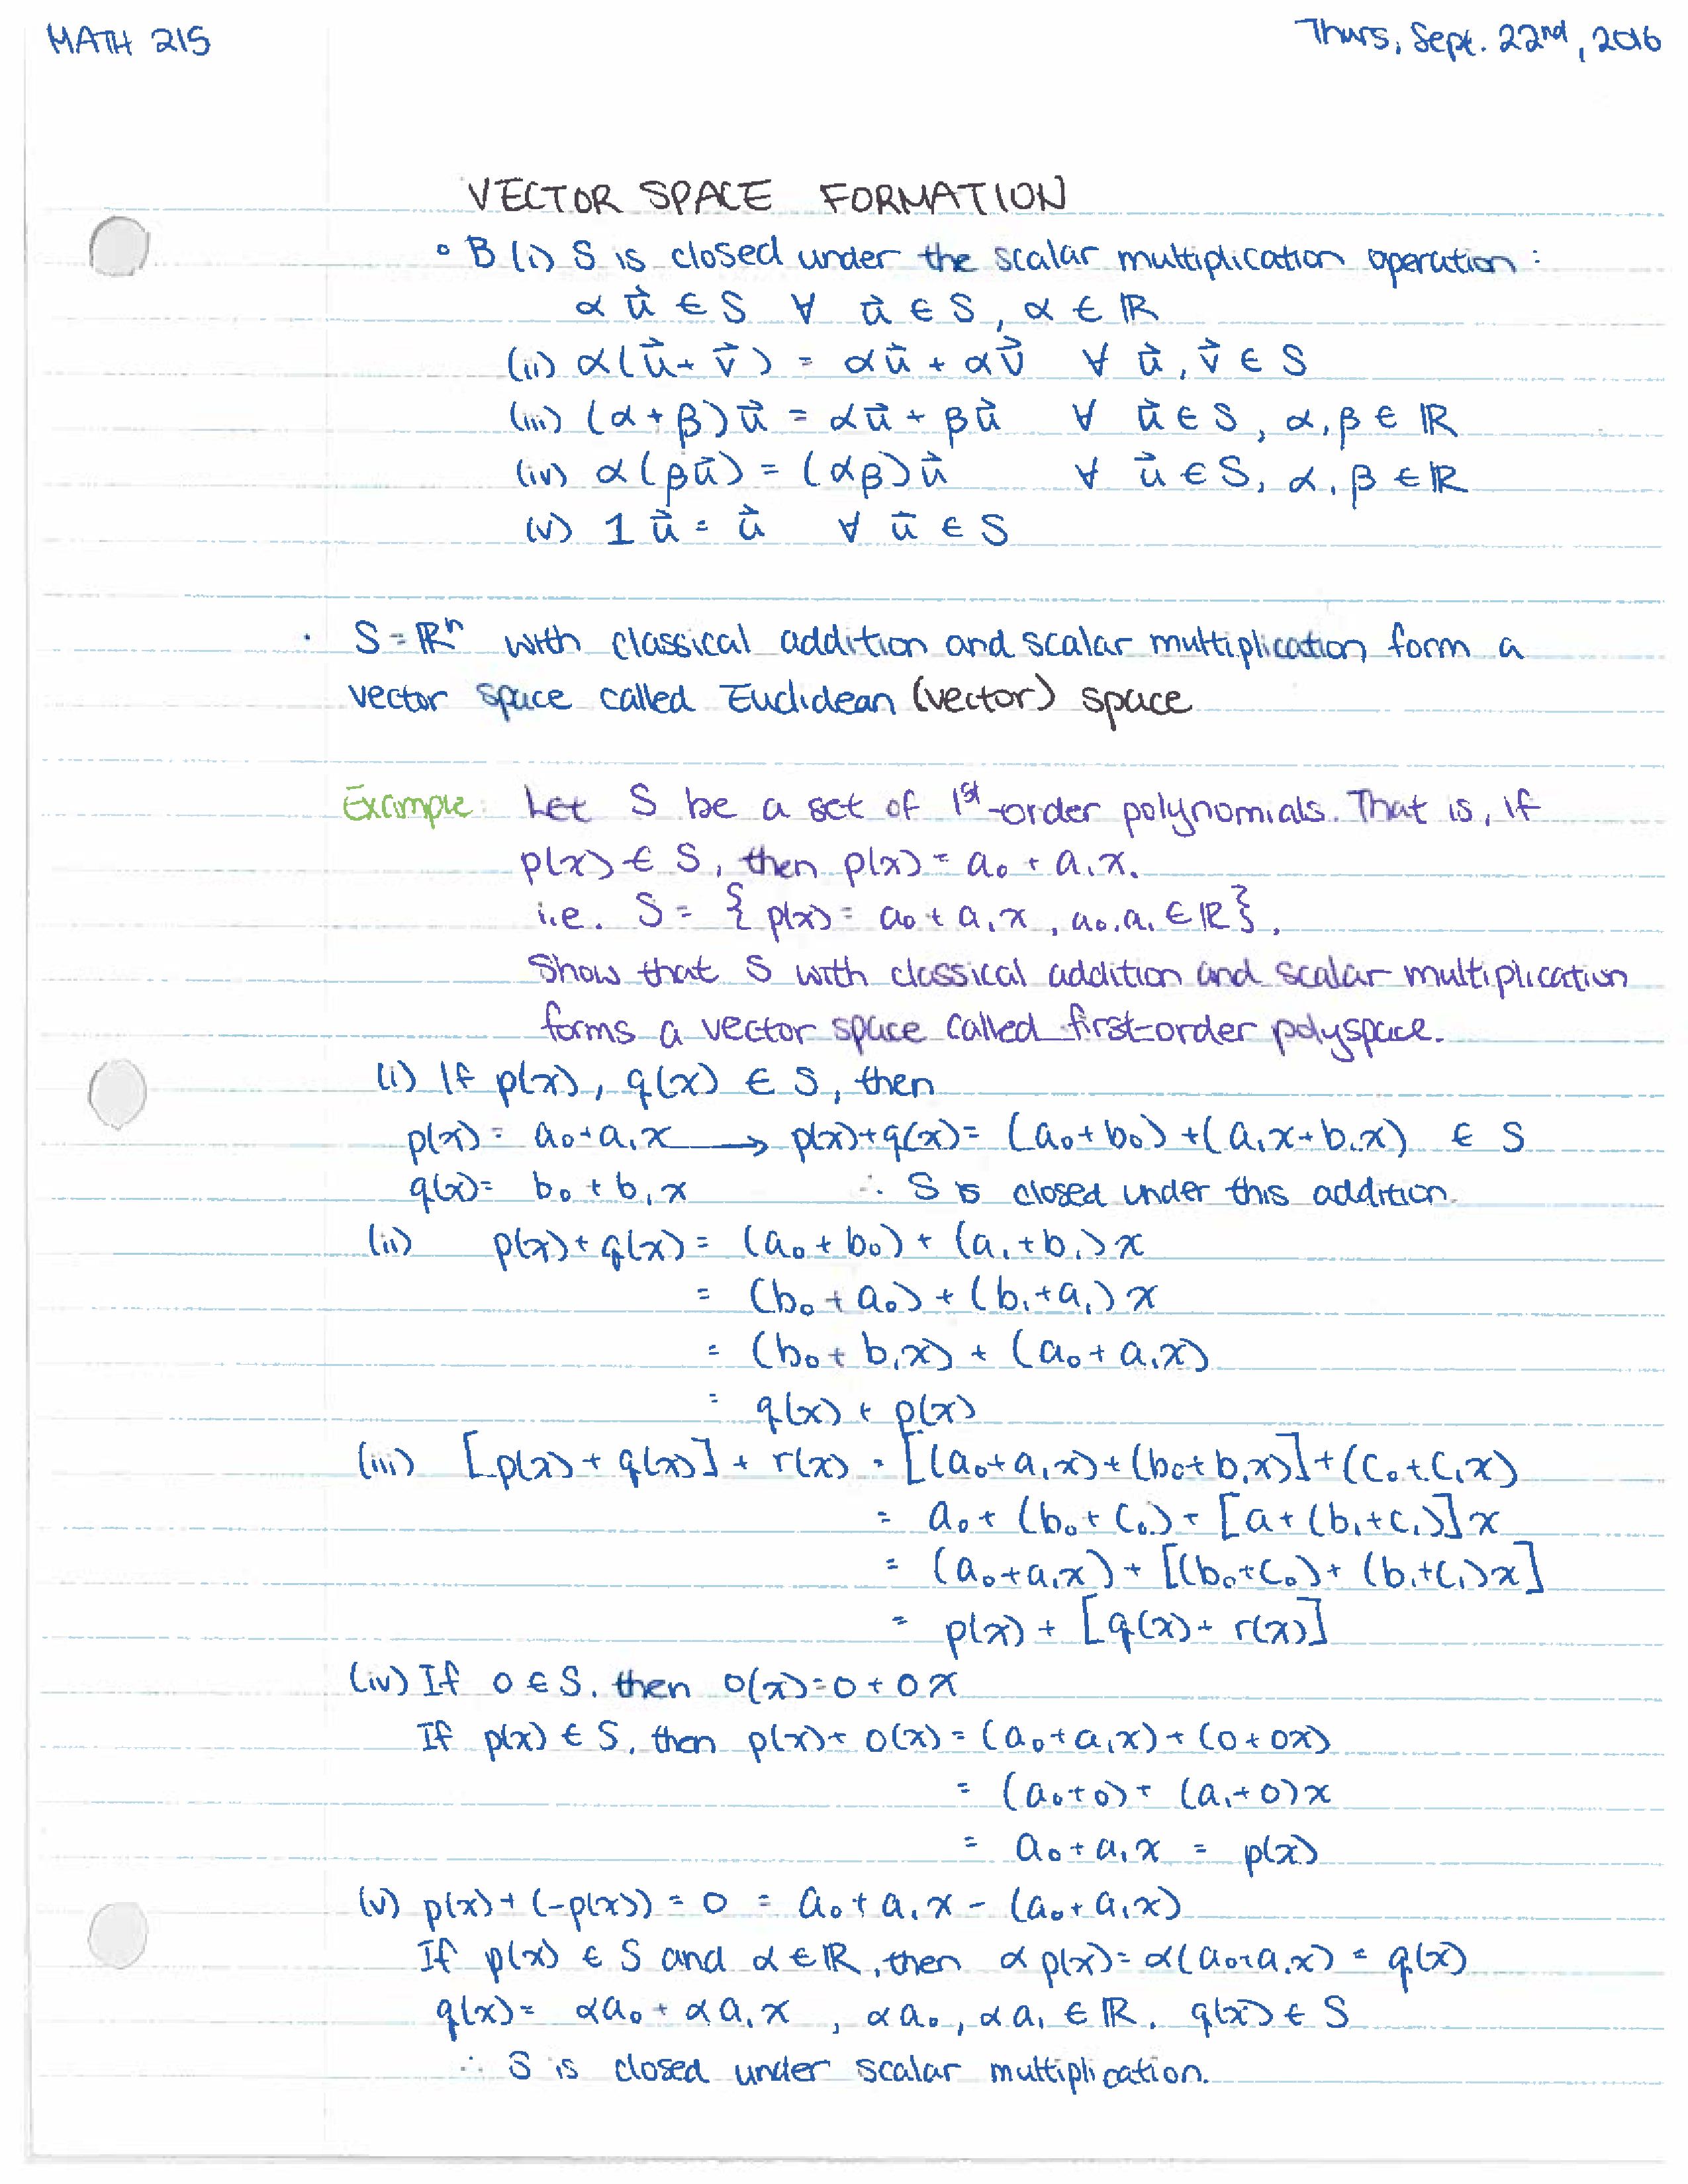 MATH 215
Thurs, Sept. 22nd, 2016
VECTOR SPACE FORMATION
∘ B (i) S is closed under the scalar multiplication operation:
α u⃗ ∈ S ∀ u⃗ ∈ S, α ∈ ℝ
(ii) α(u⃗ + v⃗) = αu⃗ + αv⃗ ∀ u⃗, v⃗ ∈ S
(iii) (α + β)u⃗ = αu⃗ + βu⃗ ∀ u⃗ ∈ S, α, β ∈ ℝ
(iv) α(βu⃗) = (αβ)u⃗ ∀ u⃗ ∈ S, α, β ∈ ℝ
(v) 1 u⃗ = u⃗ ∀ u⃗ ∈ S
· S = ℝⁿ with classical addition and scalar multiplication form a
vector space called Euclidean (vector) space
Example: Let S be a set of 1st-order polynomials. That is, if
p(x) ∈ S, then p(x) = a₀ + a₁x.
i.e. S = { p(x) = a₀ + a₁x, a₀, a₁ ∈ ℝ }.
Show that S with classical addition and scalar multiplication
forms a vector space called first-order polyspace.
(i) If p(x), q(x) ∈ S, then
p(x) = a₀ + a₁x → p(x) + q(x) = (a₀ + b₀) + (a₁x + b₁x) ∈ S
q(x) = b₀ + b₁x ∴ S is closed under this addition.
(ii) p(x) + q(x) = (a₀ + b₀) + (a₁ + b₁)x
= (b₀ + a₀) + (b₁ + a₁)x
= (b₀ + b₁x) + (a₀ + a₁x)
= q(x) + p(x)
(iii) [p(x) + q(x)] + r(x) = [(a₀ + a₁x) + (b₀ + b₁x)] + (c₀ + c₁x)
= a₀ + (b₀ + c₀) + [a + (b₁ + c₁)]x
= (a₀ + a₁x) + [(b₀ + c₀) + (b₁ + c₁)x]
= p(x) + [q(x) + r(x)]
(iv) If 0 ∈ S, then 0(x) = 0 + 0x
If p(x) ∈ S, then p(x) + 0(x) = (a₀ + a₁x) + (0 + 0x)
= (a₀ + 0) + (a₁ + 0)x
= a₀ + a₁x = p(x)
(v) p(x) + (-p(x)) = 0 = a₀ + a₁x - (a₀ + a₁x)
If p(x) ∈ S and α ∈ ℝ, then α p(x) = α(a₀ + a₁x) = q(x)
q(x) = αa₀ + αa₁x, αa₀, αa₁ ∈ ℝ, q(x) ∈ S
∴ S is closed under scalar multiplication.